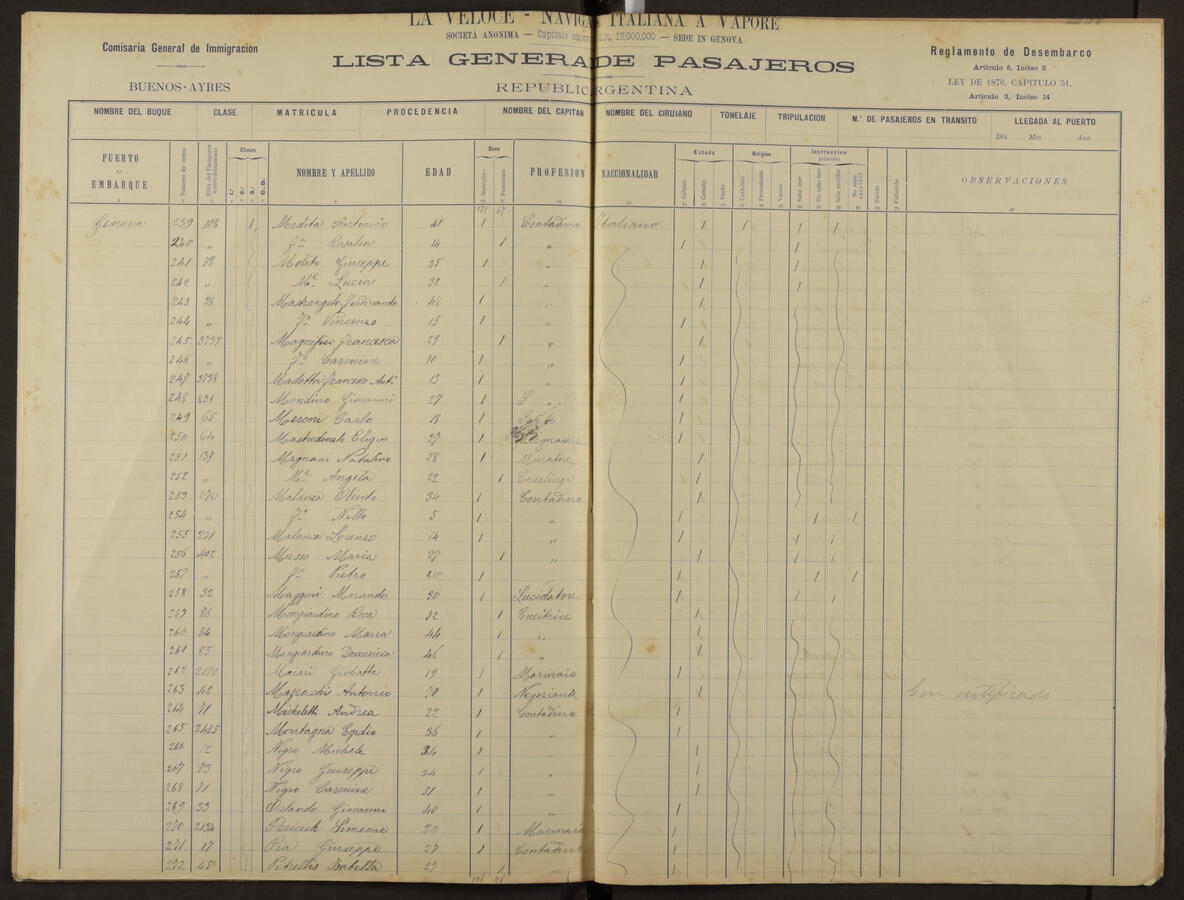 LA VELOCE - NAVIGA ITALIANA A VAPORE
SOCIETÀ ANONIMA — Capitale L.it. 13,000,000 — SEDE IN GENOVA
Comisaria General de Immigracion
BUENOS-AYRES
LISTA GENERA DE PASAJEROS
REPUBLIC ARGENTINA
Reglamento de Desembarco
Artículo 5, Inciso 3
LEY DE 1876, CAPITULO 51,
Artículo 3, Inciso 14
NOMBRE DEL BUQUE CLASE MATRICULA PROCEDENCIA NOMBRE DEL CAPITAN NOMBRE DEL CIRUJANO TONELAJE TRIPULACION N.º DE PASAJEROS EN TRANSITO LLEGADA AL PUERTO
Día Mes Ano
PUERTO DE EMBARQUE Número de orden Clases 1.ª 2.ª 3.ª NOMBRE Y APELLIDO EDAD Sexo Masculino Femenino PROFESION NACCIONALIDAD Estado Soltero Casado Viudo Religion Catholico Protestante Varios Instruccion primaria Sabe leer No sabe leer Sabe escribir No sabe escribir Nacido Fallecido OBSERVACIONES
171 67
Genova 239 108 1 Medita Antonio 41 1 Contadino Italiano 1 1 1 1
240 " Fa Rosalia 14 1 " 1 1
241 78 Molito Giuseppe 35 1 " 1
242 " Me Lucia 32 1 " 1
243 38 Mastrangelo Ferdinando 48 1 " 1
244 " Fo Vincenzo 15 1 " 1
245 3737 Magnifico Francesca 29 1 " 1
246 " Fo Carmine 10 1 " 1
247 3738 Madotta Francesco Anto 13 1 " 1
248 831 Mondino Giovanni 27 1 " 1
249 65 Meroni Carlo 18 1 1
250 64 Eligio 27 1 1
251 137 Magnani Natalino 28 1 Muratore 1
252 " Me Angela 22 1 Casalinga 1
253 270 Malanca Olindo 34 1 Contadino 1
254 " Fo Nello 5 1 " 1 1 1
255 271 Malanca Lorenzo 14 1 " 1 1 1
256 402 Musso Maria 27 1 " 1 1 1
257 " Fo Pietro 1 " 1 1 1
258 32 Maggini Morando 30 1 Lucidatore 1 1 1
259 86 Mongiardino Rosa 32 1 Cucitrice 1
260 84 Mongiardino Maria 44 1 " 1
261 85 Mongiardino Domenica 46 1 " 1
262 2170 Macari Giobatta 19 1 Marinaio 1
263 42 Antonio 70 1 Negoziante 1 Con certificado
264 71 Micheletti Andrea 22 1 Contadino 1
265 2405 Montagna Egidio 36 1 " 1
266 72 Nigro Michele 34 1 " 1
267 73 Nigro Giuseppe 34 1 " 1
268 71 Nigro Carmine 51 1 " 1
269 33 Orlando Giovanni 40 1 " 1
270 2134 Simeone 30 1 Marinaio 1
271 17 Pia Giuseppe 27 1 Contadino 1
272 45 Isabella 27 1 " 1